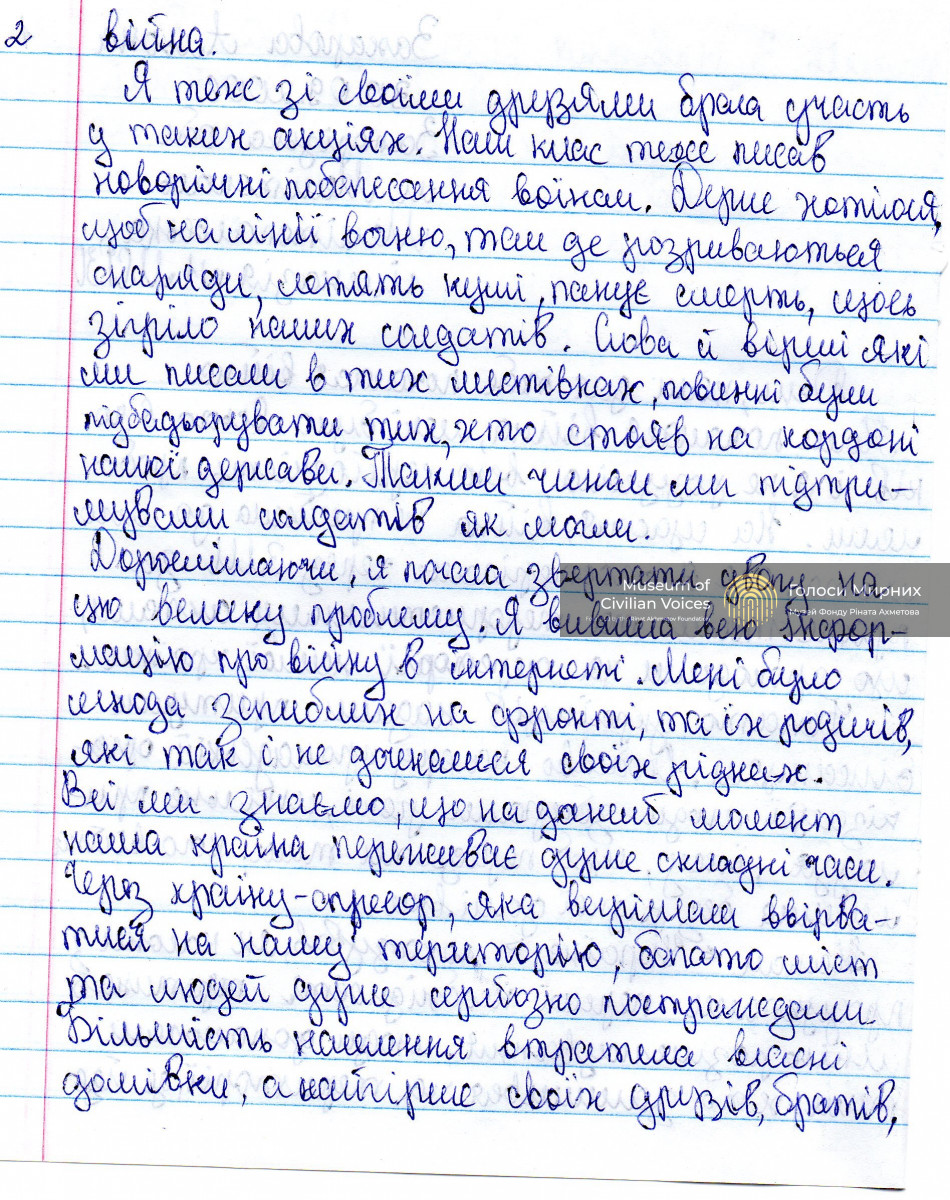 2 війна.
Я теж зі своїми друзями брала участь
у таких акціях. Наш клас теж писав
новорічні побажання воїнам. Дуже хотілося,
щоб на лінії вогню, там де розриваються
снаряди, летять кулі, панує смерть, щось
зігріло наших солдатів. Слова й вірші які
ми писали в тих листівках, повинні були
підбадьорувати тих, хто стояв на кордоні
нашої держави. Таким чином ми підтри-
мували солдатів як могли.
Дорослішаючи, я почала звертати увагу на
цю велику проблему. Я вивчила всю інфор-
мацію про війну в інтернеті. Мені було
шкода загиблих на фронті, та їх родичів,
які так і не дочекалися своїх рідних.
Всі ми знаємо, що на даний момент
наша країна переживає дуже складні часи.
Через країну-агресор, яка вирішила ввірва-
тися на нашу територію, багато міст
та людей дуже серйозно постраждали
Більшість населення втратила власні
домівки, а найгірше своїх друзів, братів,
Museum of
Civilian Voices
Голоси Мирних
Музей Фонду Ріната Ахметова